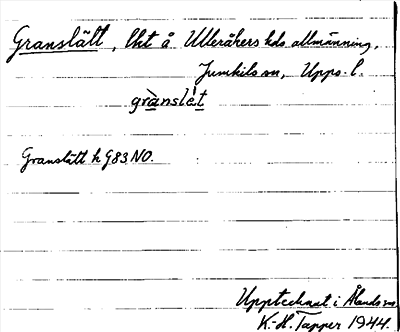 Granslätt, lkt å Ulleråkers hds allmänning,
Jumkils sn, Upps. l.
grànslèt
Granslätt h 983 NO.
Upptecknat i Ålands sn
K.-H. Tapper 1944.